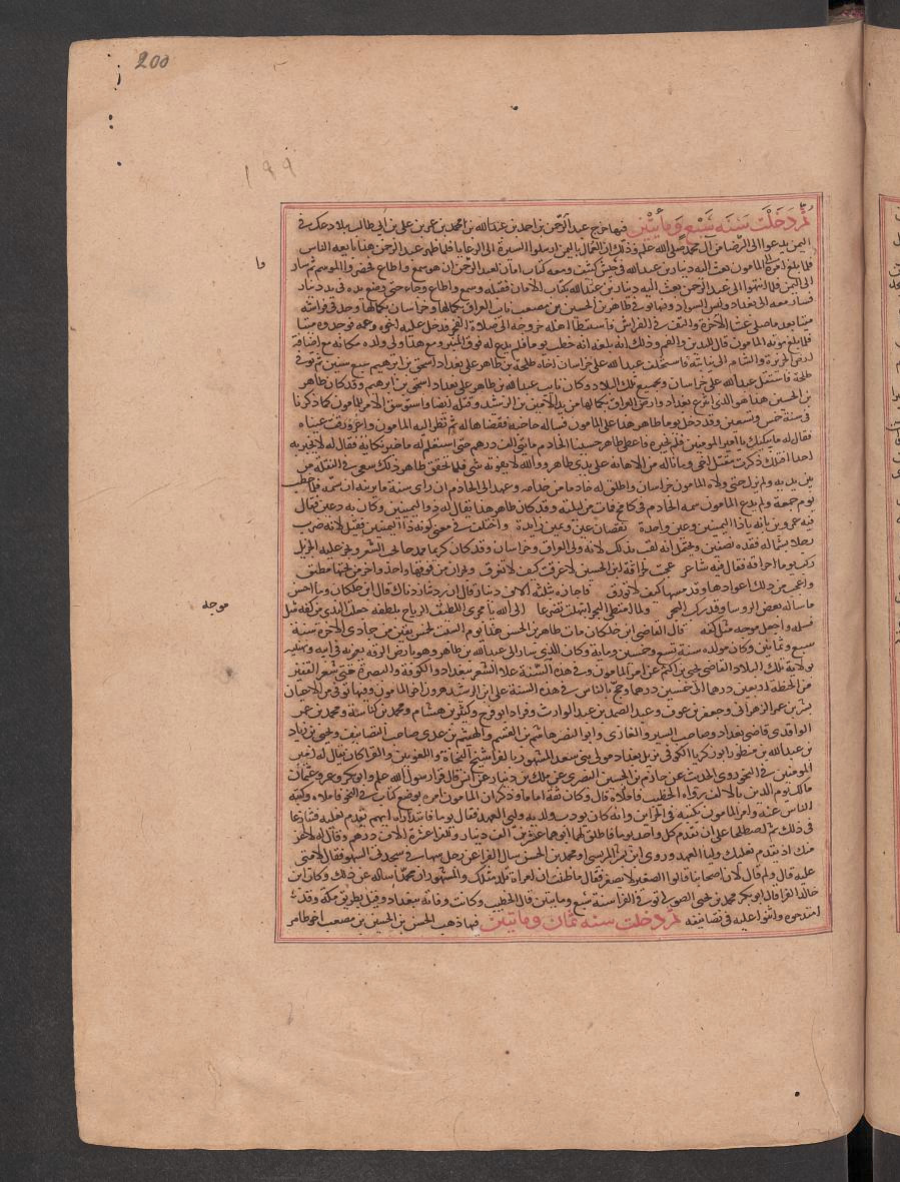 200
١٩٩
ثم دخلت سنة سبع ومائتين فيها خرج عبد الرحمن بن احمد بن عبد الله بن محمد بن عمر بن علي بن ابي طالب ببلاد عك في
اليمن يدعوا الى الرضا من آل محمد صلى الله عليه وسلم وذلك ان العمال باليمن اساوا السيرة الى الرعايا فلما ظهر عبد الرحمن هذا بايعه الناس
فلما بلغ امره المامون بعث اليه دينار بن عبد الله في جيش كثيف ومعه كتاب امان لعبد الرحمن ان هو سمع واطاع فحضروا الموسم ثم ساروا
وا
الى اليمن فلما انتهوا الى عبد الرحمن بعث اليه دينار بن عبد الله بكتاب الامان فقبله وسمع واطاع وجاء حتى وضع يده في يد دينار
فسار معه الى بغداد ولبس السواد وفيها توفي طاهر بن الحسين بن مصعب نايب العراق بكمالها وخراسان بكمالها وجد في فراشه
ميتا بعد ما صلى عشا الاخرة والتف في الفراش فاستبطا اهله خروجه الى صلاة الفجر فدخل عليه اخوه وعمه فوجدوه ميتا
فلما بلغ موته المامون قال لليدين والفم وذلك انه بلغه انه خطب يوما فلم يدع له فوق المنبر ومع هذا ولى ولده مكانه مع اضافة
ارض الجزيرة والشام الى نيابته فاستخلف عبد الله على خراسان اخاه طلحة بن طاهر على بغداد اسحق بن ابرهيم سبع سنين ثم توفي
طلحة فاستقل عبد الله على خراسان وجميع تلك البلاد وكان نايب عبد الله بن طاهر على بغداد اسحق بن ابرهيم وقد كان طاهر
بن الحسين هذا هو الذي انتزع بغداد وارض العراق بكمالها من يد الامين بن الرشيد وقتله ايضا واستوسق الامر للمامون كما ذكرنا
في سنة خمس وتسعين وقد دخل يوما طاهر هذا على المامون فساله حاجة فقضاها له ثم نظر اليه المامون واغرورقت عيناه
فقال له ما يبكيك يا امير المومنين فلم يخبره فاعطى طاهر حسينا الخادم مايتي الف درهم حتى استعلم له ما خبر بكايه فقال له لا تخبر به
احدا اقتلك ذكرت مقتل اخي وما ناله من الاهانة على يدي طاهر ووالله لا يفوته مني فلما تحقق طاهر ذلك سعى في النقلة من
بين يديه ولم يزل حتى ولاه المامون خراسان واطلق له خادما من خدامه وعهد الى الخادم ان راى سنة ما يريبه ان يسمه فلما خطب
يوم جمعة ولم يدع المامون سمه الخادم في كامخ فمات من ليلته وقد كان طاهر هذا يقال له ذو اليمينين وكان به دعين فقال
فيه عمرو بن بانة يا ذا اليمينين وعين واحدة نقصان عين ويمين زايدة واختلف في معنى كونه ذا اليمينين فقيل لانه ضرب
رجلا بشماله فقده نصفين ويحتمل انه لقب بذلك لانه ولي العراق وخراسان وقد كان كريما ممدحا يحب الشعر ويجيز عليه الجزيل
ركب يوما حراقة فقال فيه شاعر عجبت لحراقة ابن الحسين لا غرقت كيف لا تغرق وبحران من فوقها واحد واخر من تحتها مطبق
واعجب من ذلك اعوادها وقد مسها كيف لا تورق فاجازه بثلثة آلاف دينار وقال ان زدتنا زدناك قال ابن خلكان وما احسن
ما ساله بعض الروسا وقد ركب البحر ولما امتطى البحر ابتهلت تضرعا الى الله يا مجري اللطيف الرياح بلطفه جعلت الندى من كفه مثل
موجه
فسله واجعل موجه مثل كفه قال القاضي ابن خلكان مات طاهر بن الحسين هذا يوم السبت لخمس بقين من جمادى الاخرة سنة
سبع ومايتين وكان مولده سنة تسع وخمسين وماية وكان الذي سار الى عبد الله بن طاهر وهو بارض الرقة يعزيه في ابيه ويهنيه
بولاية تلك البلاد القاضي يحيى بن اكثم عن امر المامون وفي هذه السنة غلا السعر ببغداد والكوفة والبصرة حتى سعر القفيز
من الحنطة اربعين درهما الى خمسين درهما وحج بالناس في هذه السنة علي ابن الرشيد هرون اخو المامون وفيها توفي من الاعيان
بشر بن عمر الزهراني وجعفر بن عون وعبد الصمد بن عبد الوارث وقراد ابو نوح وكثير بن هشام ومحمد بن كناسة ومحمد بن عمر
الواقدي قاضي بغداد وصاحب السير والمغازي وابو النضر هاشم بن القسم والهيثم بن عدي صاحب التصانيف ويحيى بن زياد
بن عبد الله بن منظور ابو زكريا الكوفي نزيل بغداد مولى بني سعد المشهور بالفرا شيخ النحاة واللغويين والقرا كان يقال له امير
المومنين في النحو روى الحديث عن حازم بن الحسين البصري عن ملك بن دينار عن انس قال قرا رسول الله صلعم وابو بكر وعمر وعثمان
مالك يوم الدين بالالف رواه الخطيب قال وكان ثقة اماما وذكر ان المامون امره بوضع كتاب في النحو فاملاه وكتبه
الناس عنه وامر المامون بكتبه في الخزاين وانه كان يودب ولديه وليي العهد فقام يوما فابتدراه ايهم يقدم نعليه فتنازعا
في ذلك ثم اصطلحا على ان يقدم كل واحد يوما فاطلق لهما ابوهما عشرين الف دينار وللفرا عشرة الاف درهم وقال له لا اعز
منك اذ يقدم نعليك وليا العهد وروى ان بشر المريسي او محمد بن الحسن سال الفرا عن رجل سها في سجدتي السهو فقال لا شي
عليه قال ولم قال لان اصحابنا قالوا المصغر لا يصغر فقال ما ظننت ان امراة تلد مثلك والمشهور ان محمدا ساله عن ذلك وكان ابن
خالة الفرا قال ابو بكر محمد بن يحيى الصولي توفي الفرا سنة سبع ومايتين قال الخطيب وكانت وفاته ببغداد وقيل بطريق مكة وقد
امتدحوه واثنوا عليه في تصانيفه ثم دخلت سنة ثمان ومايتين فيها ذهب الحسن بن الحسين بن مصعب اخو طاهر